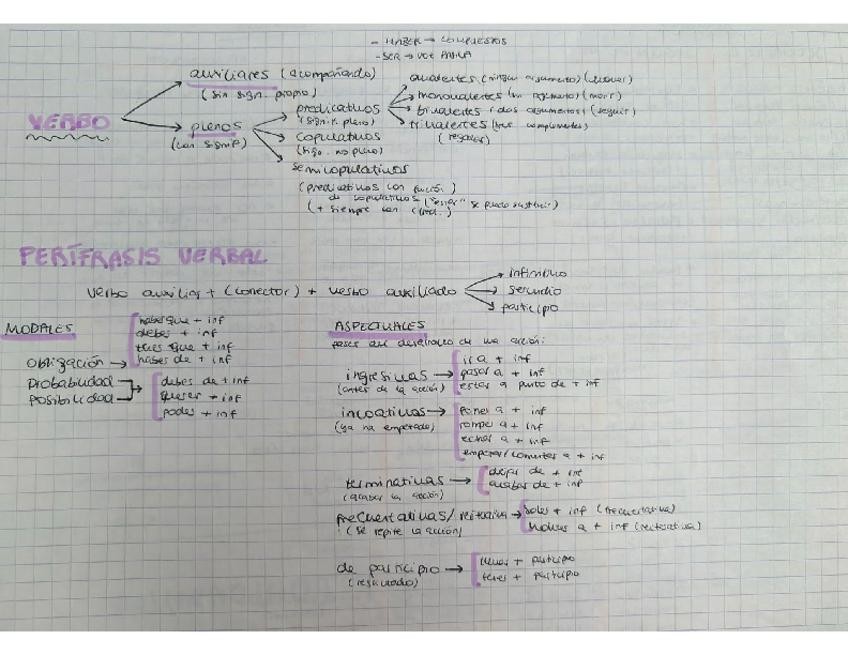 - HABER → COMPUESTOS
- SER → VOZ PASIVA
auxiliares (acompañando)
(sin sign. propio)
VERBO
plenos
(con signif)
predicativos
(signif. pleno)
avalentes (ningún argumento) (llover)
monovalentes (un argumento) (morir)
bivalentes (dos argumentos) (seguir)
trivalentes (tres complementos)
(regalar)
copulativos
(sign. no pleno)
semicopulativos
(predicativos con función
de copulativos ("estar" se puede sustituir)
(+ siempre con C.Pred.)
PERÍFRASIS VERBAL
verbo auxiliar + (conector) + verbo auxiliado
infinitivo
gerundio
participio
MODALES
obligación →
haber que + inf
deber + inf
tener que + inf
haber de + inf
probabilidad
posibilidad
deber de + inf
querer + inf
poder + inf
ASPECTUALES
fases del desarrollo de una acción:
ingresivas →
(antes de la acción)
ir a + inf
pasar a + inf
estar a punto de + inf
incoativas →
(ya ha empezado)
poner a + inf
romper a + inf
echar a + inf
empezar/comenzar a + inf
terminativas →
(acabar la acción)
dejar de + inf
acabar de + inf
frecuentativas/reiterativas →
(se repite la acción)
soler + inf (frecuentativa)
volver a + inf (reiterativa)
de participio →
(resultado)
llevar + participio
tener + participio